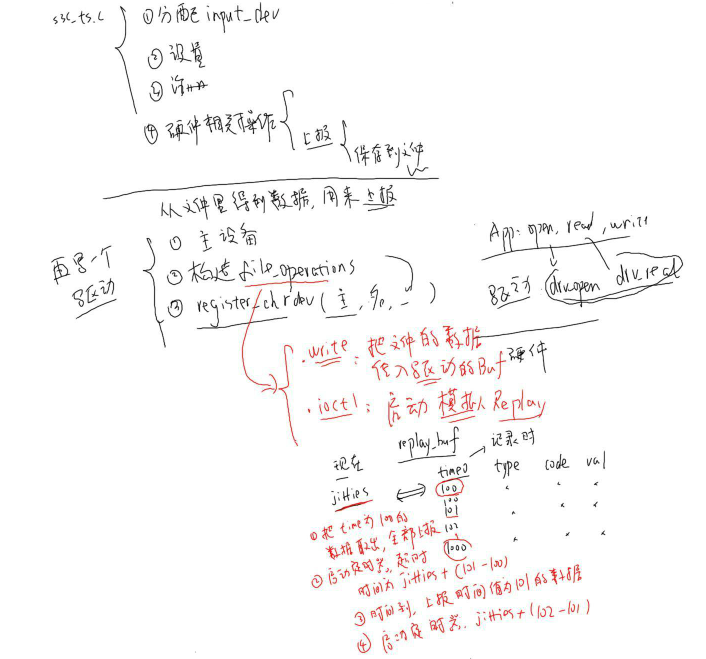 s3c_ts.c
①分配input_dev
②设置
③注册
④硬件相关操作
上报
保存到文件
从文件里得到数据,用来上报
再写一个
驱动
① 主设备
②构造file_operations
③ register_chrdev(主,名,_)
App: open, read, write
驱动 drv.open drv.read
硬件
.write: 把文件的数据
传入驱动的Buf
.ioctl: 启动模拟Replay
replay_buf
现在
记录时
time0 type code val
jiffies
100 " " "
100
101 " " "
102
1000 " " "
①把time为100的
数据取出,全部上报
②启动定时器,超时
时间为jiffies+(101-100)
③时间到,上报时间值为101的数据
④启动定时器, jiffies+(102-101)